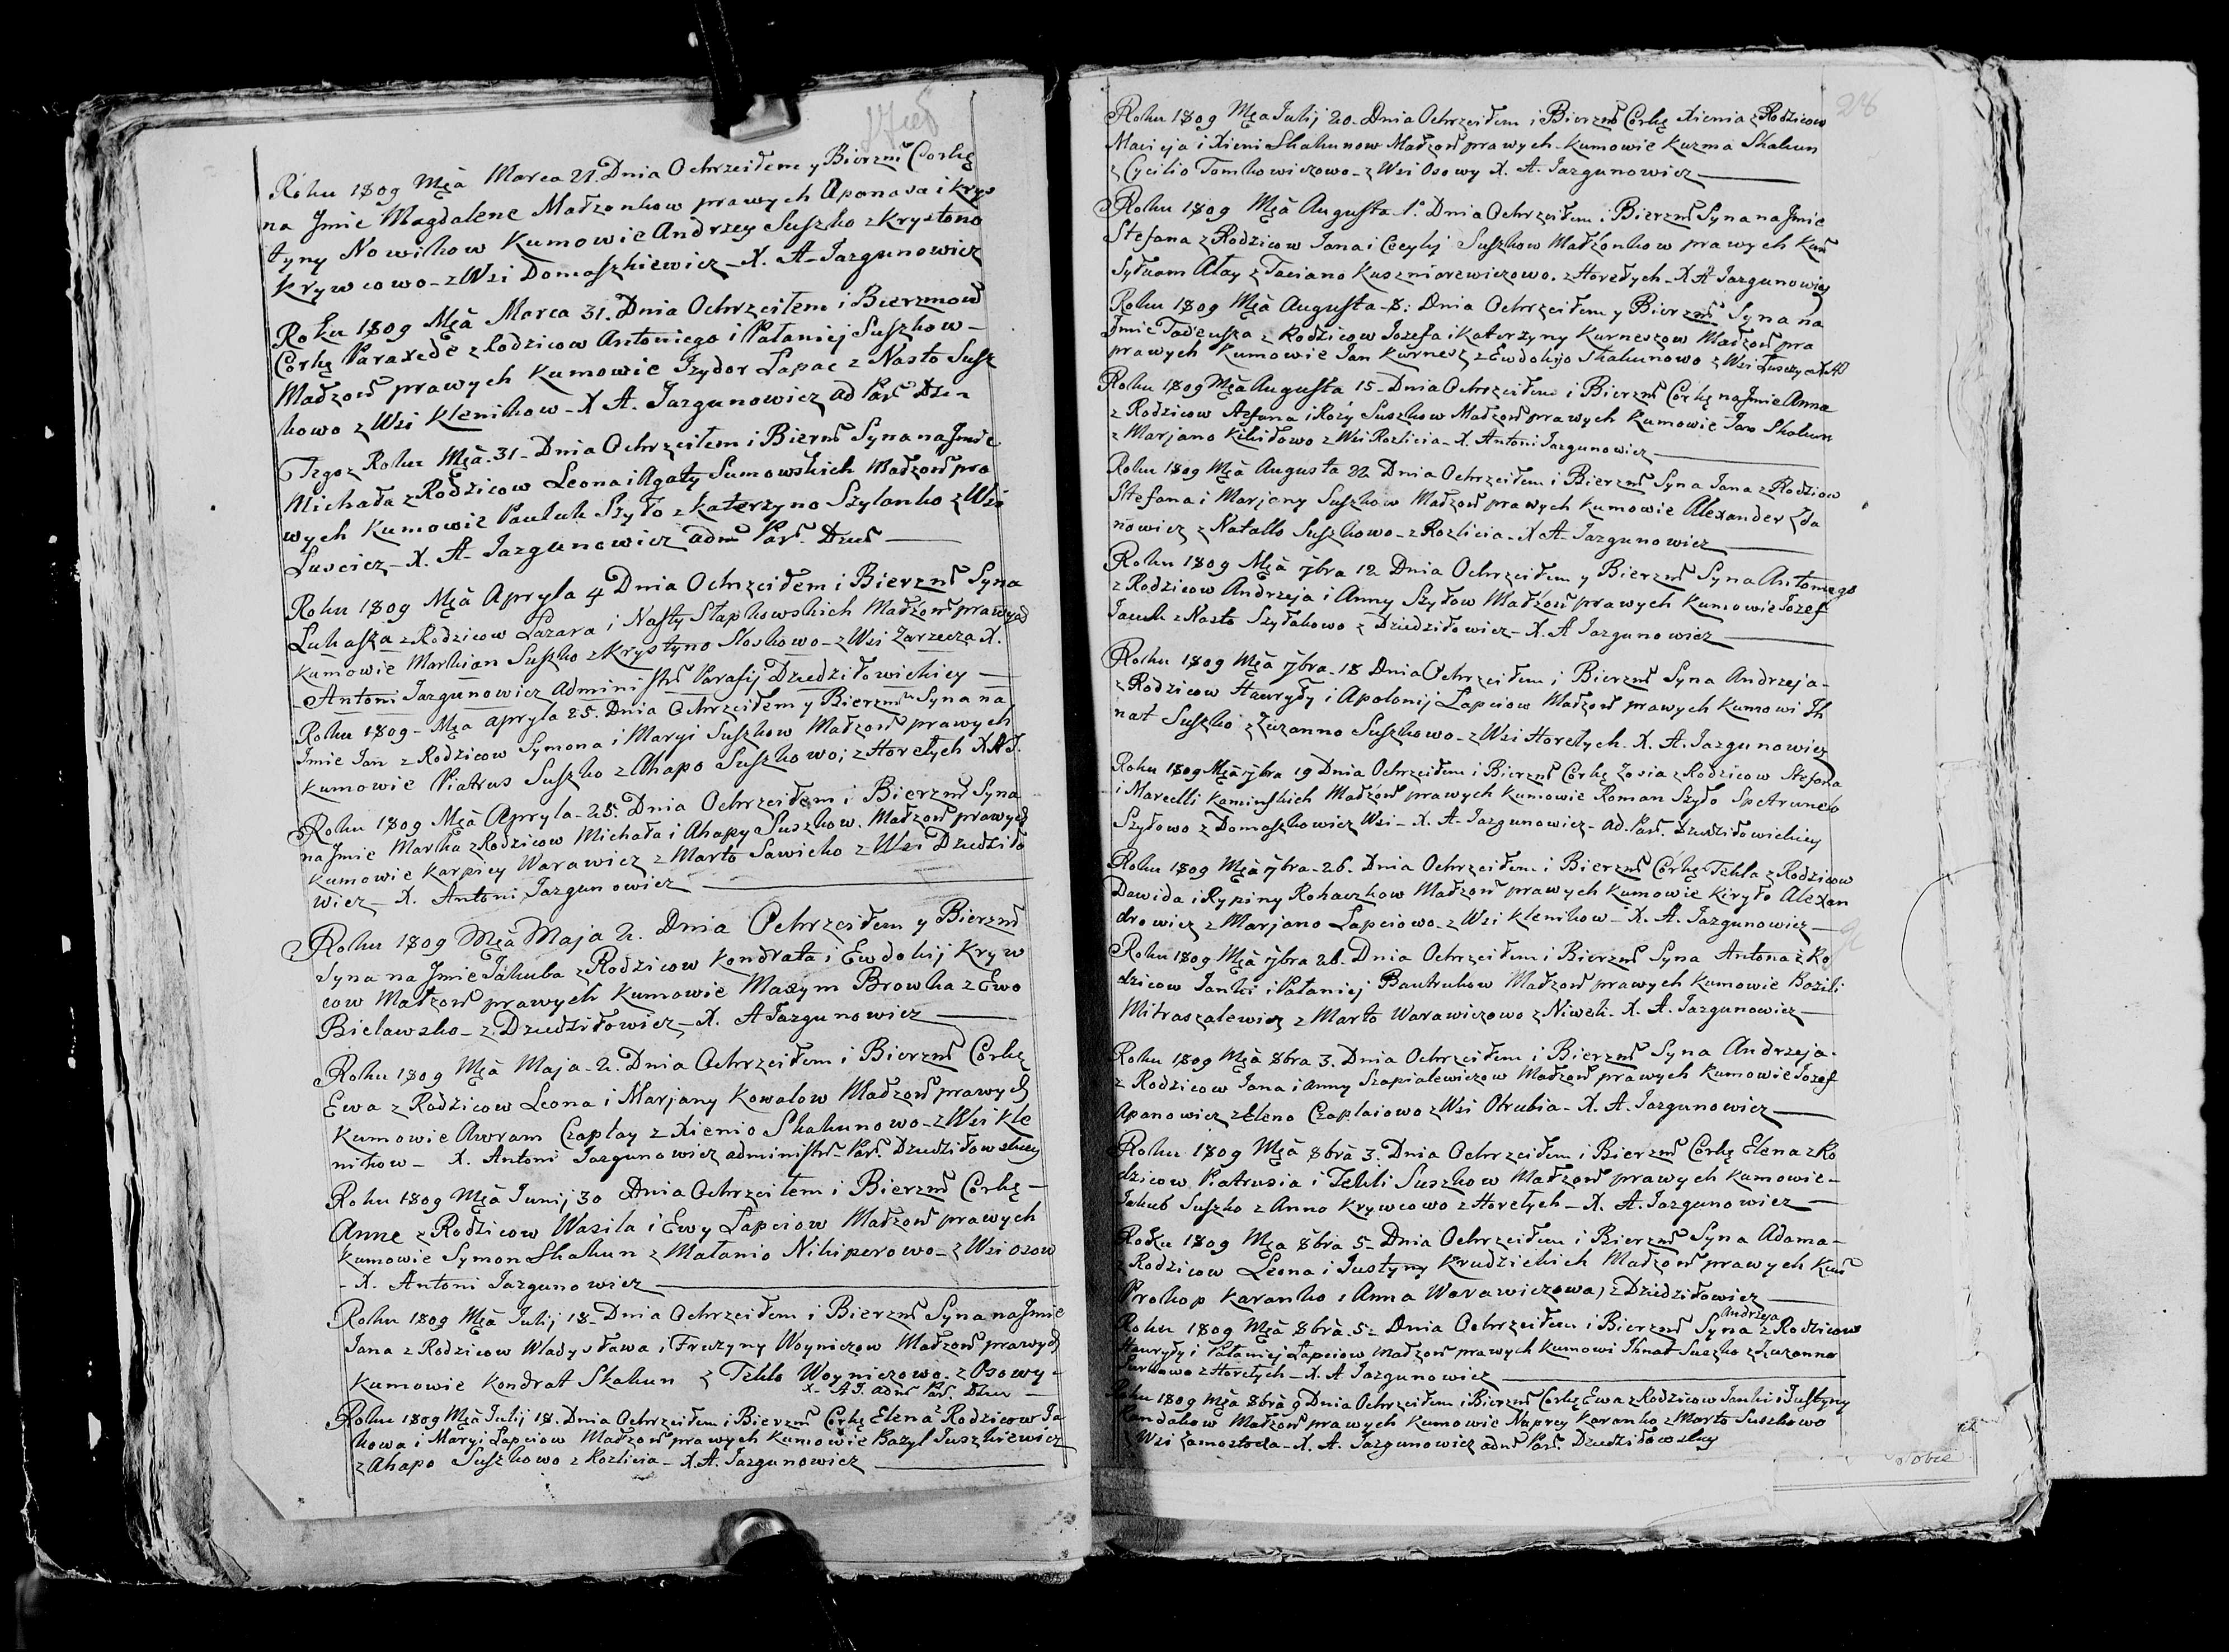 Roku 1809 Mca Marca 21. Dnia Ochrzciłem y Bierzm Corkę
na Jmie Magdalene Małzonkow prawych Aponasa i Krys
tyny Nowikow Kumowie Andrzey Suszko z Krystono
Krywcowo – z Wsi Domaszkiewicz – X. A. Jazgunowicz
Roku 1809 Mca Marca 31. Dnia Ochrzciłem i Bierzmow
Corkę Paraxede z Rodzicow Antoniego i Pałaniej Suszkow –
Małzon prawych Kumowie Jzydor Łapac z Nasto Susz
kowo z Wsi Klenikow – X A. Jazgunowicz ad Par Dzie
Tegoz Roku Mca. 31 – Dnia Ochrzciłem i Bierm Syna na Jmie
Michała z Rodzicow Leona i Agaty Sumowskich Małzon pra
wych Kumowie Pauluk Szyło z Katerzyno Szylanko z Wsi
Łusciez – X. A. Jazgunowicz adm Par. Dzied
Roku 1809 Mca Apryla 4 Dnia Ochrzciłem i Bierzm Syna
Łukasza z Rodzicow Łazara i Nasty Słapkowskich Małzon prawych
Kumowie Markian Suszko z Krystyno Noskowo – z Wsi Zarzecza X.
Antoni Jazgunowicz Administr Parafij Dziedziłowickiey
Roku 1809 – Mca Apryla 25. Dnia Ochrzciłem y Bierzm Syna na
Jmie Jan z Rodzicow Symona i Maryi Suszkow Małzon prawych
Kumowie Piatrus Suszko z Ahapo Suszkowo; z Horełych X A J.
Roku 1809 Mca Apryla – 25. Dnia Ochrzciłem i Bierzm Syna
na Jmie Marka z Rodzicow Michała i Ahapy Suszkow. Małzon prawych
Kumowie Karpiey Warawicz z Marto Sawicko z Wsi Dziedziło
wicz – X. Antoni Jazgunowicz
Roku 1809 Mca Maja 2. Dnia Ochrzciłem y Bierzm
Syna na Jmie Jakuba z Rodzicow Kondrata i Ewdokij Kryw
cow Małzon prawych Kumowie Maxym Browka z Ewo
Bielawsko – z Dziedziłowicz – X. A Jazgunowicz
Roku 1809 Mca Maja – 2. Dnia Ochrzciłem i Bierzm Córkę
Ewa z Rodzicow Leona i Marjany Kowalow Małzon prawych
Kumowie Awram Czapłay z Xienio Skakunowo – z Wsi Kle
nikow – X. Antoni Jazgunowicz administr Par. Dziedziłowskiey
Roku 1809 Mca Junij 30 Dnia Ochrzciłem i Bierzm Córkę –
Anne z Rodzicow Wasila i Ewy Łapciow Małzon prawych
Kumowie Symon Skakun z Matanio Nikiperowo – z Wsi Osow
– X. Antoni Jazgunowicz
Roku 1809 Mca Julij 18 – Dnia Ochrzciłem i Bierzm Syna na Jmie
Jana z Rodzicow Władysława i Fruzyny Woyniczow Małzon prawych
Kumowie Kondrat Skakun z Tekło Woyniczowo. z Osowy –
X. A J. adm Par. Dzied
Roku 1809 Mca Julij 18. Dnia Ochrzciłem i Bierzm Córkę Elena z Rodzicow Ja
kowa i Maryi Łapciow Małzon prawych Kumowie Bazyl Juszkiewicz
z Ahapo Suszkowo z Rozlicia – X. A. Jazgunowicz
28
Roku 1809 Mca Julij 20 – Dnia Ochrzciłem i Bierzm Córkę Xienia z Rodzicow
Macieja i Xieni Skakunow Małzon prawych – Kumowie Kuzma Skakun
z Cycilio Tomkowiczowo – z Wsi Osowy X. A. Jazgunowicz
Roku 1809 Mca Augusta 1. Dnia Ochrzciłem i Bierzm Syna na Jmie
Stefana z Rodzicow Jana i Cecylij Suszkow Małżonkow prawych Kum
z Taciano Kuszniarewiczowo. z Horełych – X A Jazgunowicz
Roku 1809 Mca Augusta – 8: Dnia Ochrzciłem y Bierzm Syna na
Jmie Tadeusza z Rodzicow Jozefa i Katerzyny Kurneszow Małzon pra
prawych Kumowie Jan Kurnesz z Ewdokijo Skakunowo z Wsi
Roku 1809 Mca Augusta 15 – Dnia Ochrzciłem i Bierzm Córkę na Jmie Anna
z Rodzicow i Rozy Suszkow Małzon prawych Kumowie Jan Skakun
z Marjano Kikiłowo z Wsi Rozlicia – X. Antoni Jazgunowicz
Roku 1809 Mca Augusta 22 Dnia Ochrzciłem i Bierzm Syna Jana z Rodzicow
Stefana i Marjany Suszkow Małzon prawych Kumowie Alexander Zda
nowicz z Natallo Suszkowo – z Rozlicia – X A. Jazgunowicz
Roku 1809 Mca 7bra 12 Dnia Ochrzciłem y Bierzm Syna Antoniego
z Rodzicow Andrzeja i Anny Szyłow Małzon prawych Kumowie Jozef
z Nasto Szyłakowo z Dziedziłowicz – X. A Jazgunowicz
Roku 1809 Mca 7bra – 18 Dnia Ochrzciłem i Bierzm Syna Andrzeja –
z Rodzicow Hauryły i Apolonij Łapciow Małzon prawych Kumowi Ih
nat Suszko z Zuzanno Suszkowo – z Wsi Horełych. X. A. Jazgunowicz
Roku 1809 Mca 7bra 19 Dnia Ochrzciłem i Bierzm Córkę Zosia z Rodzicow Stefana
i Marcelli Kaminskich Małzon prawych Kumowie Roman Szyło
Szyłowo z Domaszkowicz Wsi – X. A. Jazgunowicz – ad. Par. Dziedziłowickiey
Roku 1809 Mca 7bra – 26. Dnia Ochrzciłem i Bierzm Córkę Tekla z Rodzicow
Dawida i Rypiny Rohaczkow Małzon prawych Kumowie Kiryło Alexan
drowicz z Marjano Łapciowo – z Wsi Klenikow – X. A. Jazgunowicz
Roku 1809 Mca 7bra 26. Dnia Ochrzciłem i Bierzm Syna Antona z Ro
dzicow Janki i Pałaniej Bautrukow Małzon prawych Kumowie Bazili
Mitraszalewicz z Marto Warawiczowo z Niwek. X. A. Jazgunowicz
Roku 1809 Mca 8bra 3. Dnia Ochrzciłem i Bierzm Syna Andrzeja –
z Rodzicow Jana i Anny Szapialewiczow Małzon prawych Kumowie Jozef
Apanowicz z Eleno Czaplaiowo z Wsi Otrubia – X. A. Jazgunowicz
Roku 1809 Mca 8bra 3. Dnia Ochrzciłem i Bierzm Córkę Elena z Ro
dzicow Piatrusia i Tekli Suszkow Małzon prawych Kumowie –
Jakub Suszko z Anno Krywcowo z Horełych – X. A. Jazgunowicz
Roku 1809 Mca 8bra 5 – Dnia Ochrzciłem i Bierzm Syna Adama –
Rodzicow Leona i Justyny Krudzickich Małzon prawych Kum
Prokop Karanko i Anna Warawiczowa, z Dziedziłowicz
Andrzeja
Roku 1809 Mca 8bra. 5 – Dnia Ochrzciłem i Bierzm Syna z Rodzicow
Hauryły i Pałaniej Łapciow Małzon prawych Kumowi Ihnat Suszko z Zuzanno
z Horełych – X. A Jazgunowicz
Roku 1809 Mca 8bra 9 Dnia Ochrzciłem i Bierzm Corkę Ewa z Rodzicow Janki i Justyny
Małzon prawych Kumowie Naprey Karanko z Marto Suszkowo
z Wsi Zamostocza – X. A. Jazgunowicz adm Par. Dziedziłowskiey